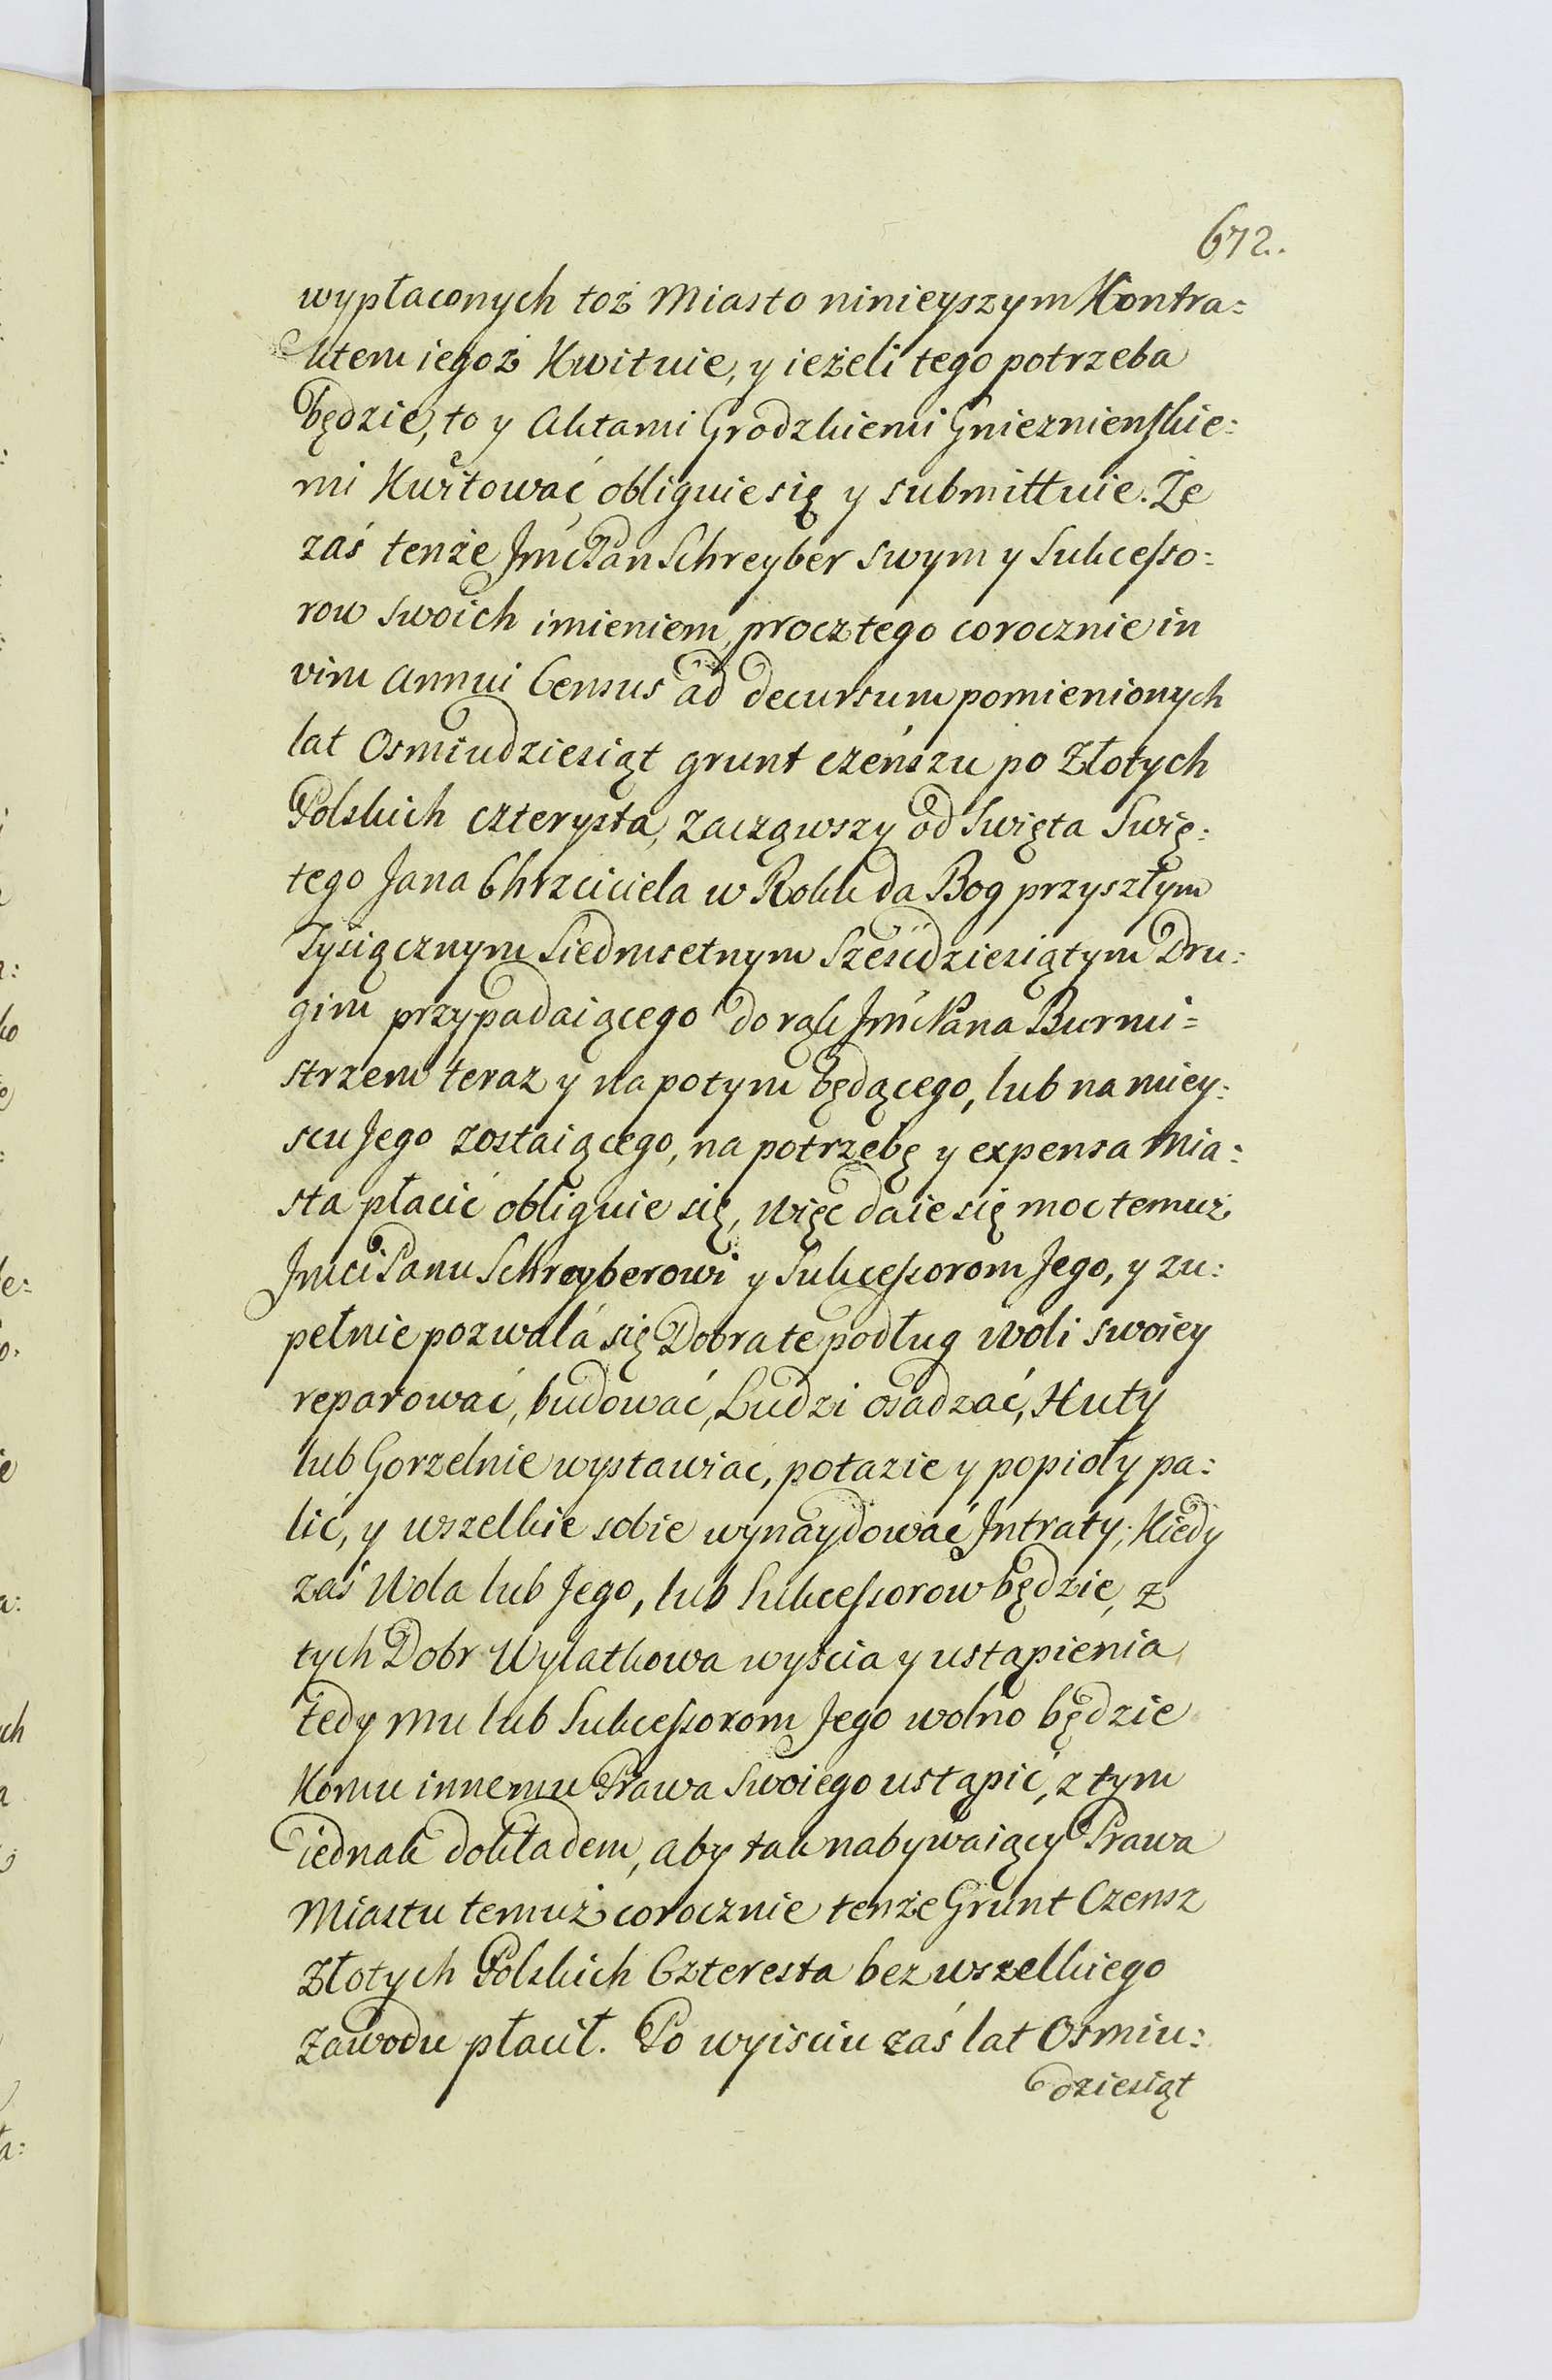 672.
wypłaconych toż Miasto ninieyszym Kontra=
ktem iegoż Kwituie, y ieżeli tego potrzeba
będzie, to y Aktami Grodzkiemi Gnieznienskie=
mi Kwitować, obliguie się y submittuie. Że
zaś tenże Jmć Pan Schreyber swym y Sukcesso=
row swoich imieniem, procz tego corocznie in
vim annui Census ad decursum pomienionych
lat Osmiudziesiąt grunt czeńszu po Złotych
Polskich czterysta, zacząwszy od Swięta Swię=
tego Jana Chrzciciela w Roku da Bog przyszłym
Tysiącznym Siedmsetnym Sześcdziesiątym Dru=
gim przypadaiącego do rąk Jmć Pana Burmi=
strzem teraz y na potym będącego, lub na miey=
scu Jego zostaiącego, na potrzebę y expensa Mia=
sta płacić obliguie się, Więc daie się moc temuż
Jmci Panu Schreyberowi y Sukcessorom Jego, y zu=
pełnie pozwala się Dobra te podług woli swoiey
reparować, budować, Ludzi osadzać, Huty
lub Gorzelnie wystawiać, potazie y popioły pa=
lić, y wszelkie sobie wynaydować Intraty; Kiedy
zaś Wola lub Jego, lub Sukcessorow będzie, z
tych Dobr Wylatkowa wyścia y ustąpienia
tedy mu lub Sukcessorom Jego wolno będzie
Komu innemu Prawa Swoiego ustąpić, z tym
iednak dokładem, aby tak nabywaiący Prawa
Miastu temuż corocznie tenże Grunt Czensz
Złotych Polskich Czteresta bez wszelkiego
zawodu płacił. Po wyisciu zaś lat Osmiu=
dziesiąt